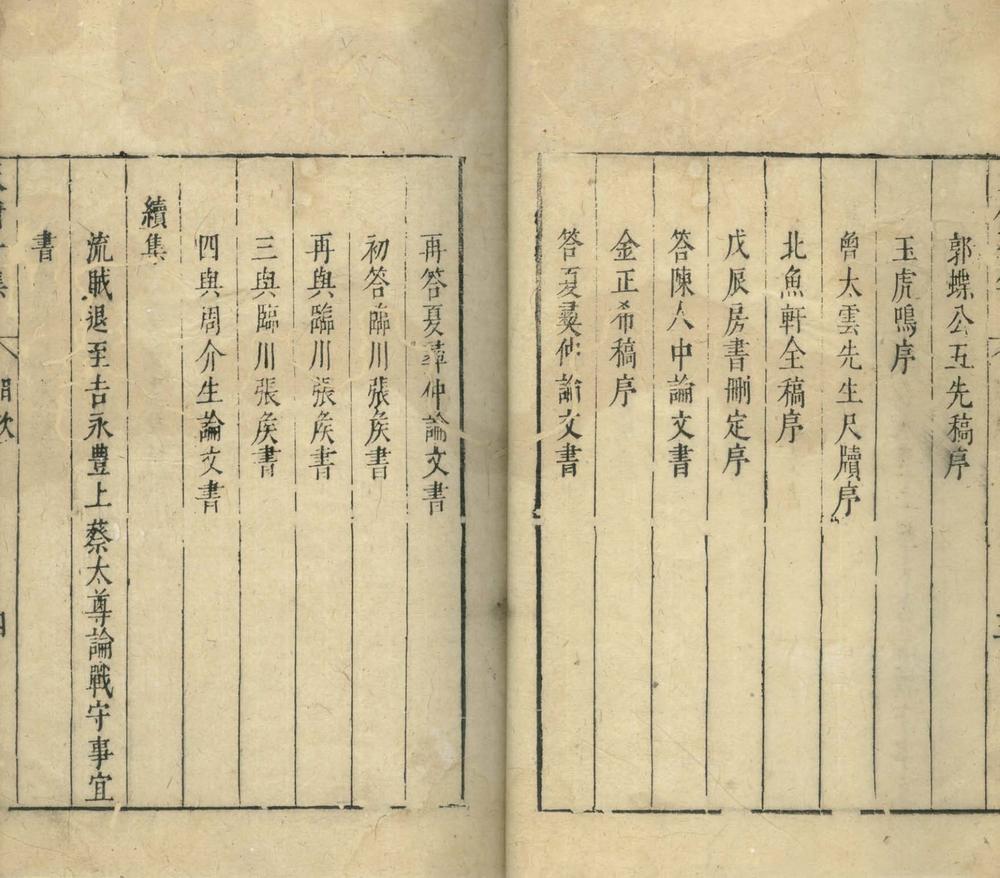 郭蝶公五先稿序
玉虎鳴序
曾太雲先生尺牘序
北魚軒全稿序
戊辰房書刪定序
答陳人中論文書
金正希稿序
答夏彝仲論文書
再答夏彝仲論文書
初答臨川張矦書
再與臨川張矦書
三與臨川張矦書
四與周介生論文書
續集
流賊退至吉永豊上蔡太尊論戰守事宜
書